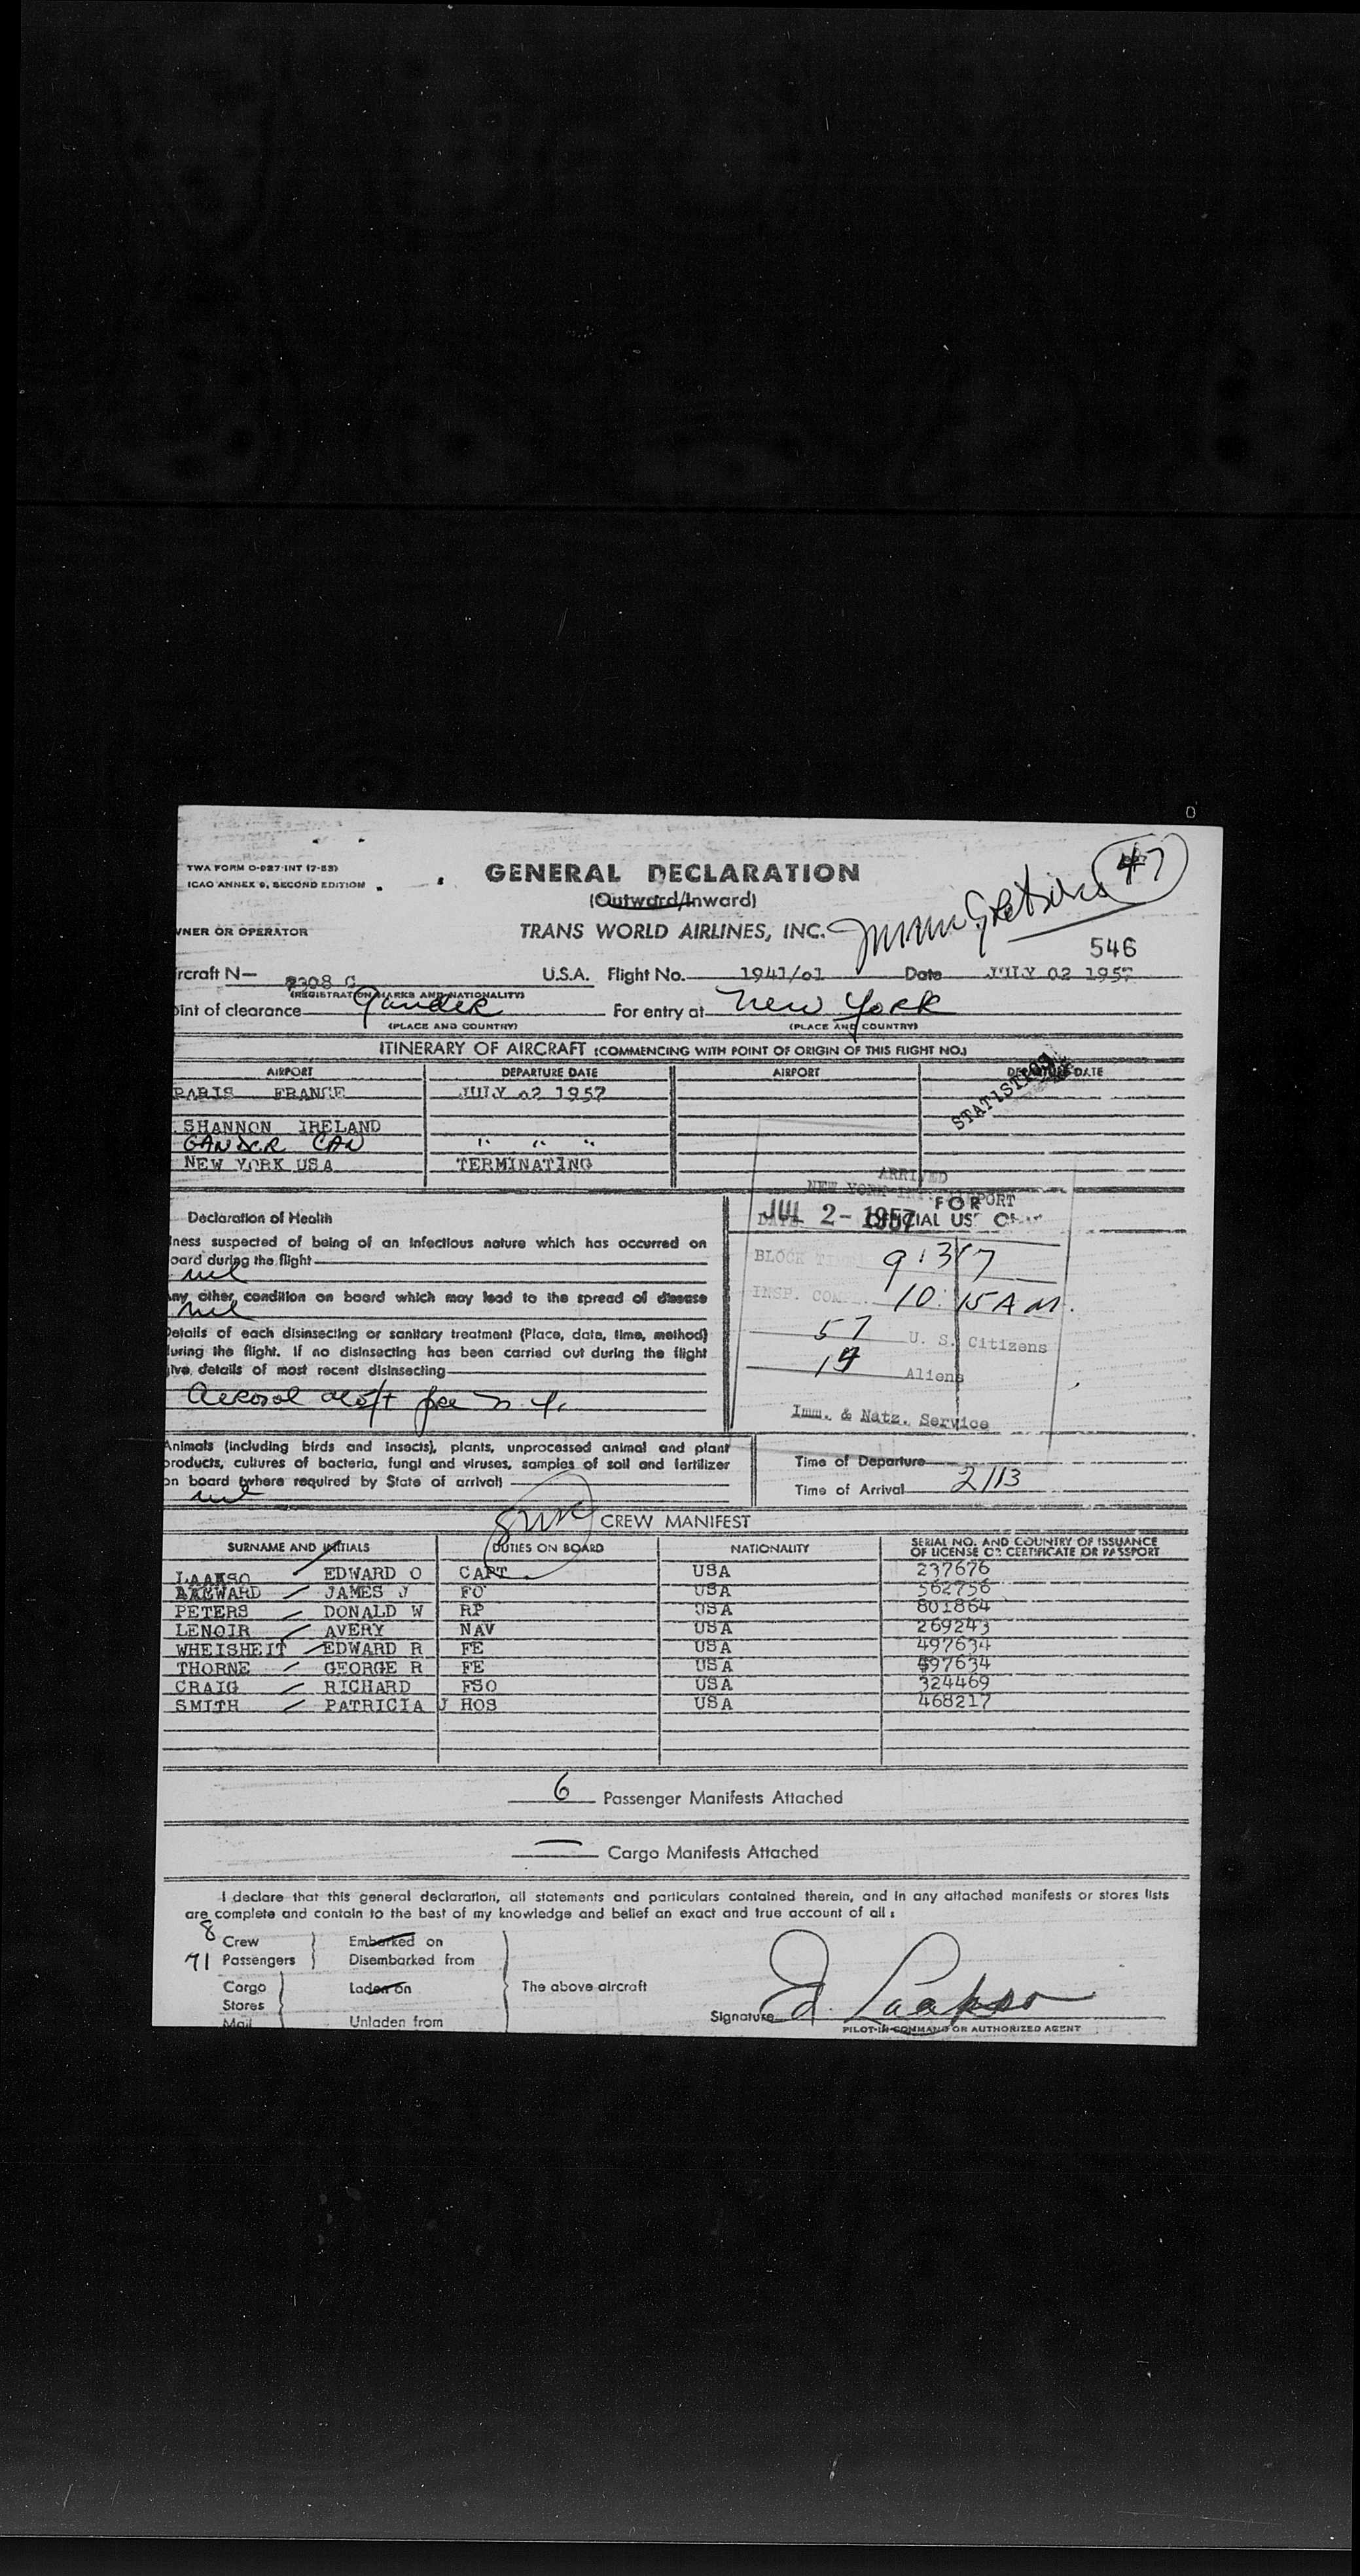 0
TWA FORM O-927-INT (7-53)
ICAO ANNEX 9, SECOND EDITION
GENERAL DECLARATION
(Outward/Inward)
47
WNER OR OPERATOR
TRANS WORLD AIRLINES, INC.
546
rcraft N— 2308 C U.S.A. Flight No. 1941/01 Date JULY 02 1957
(REGISTRATION MARKS AND NATIONALITY)
oint of clearance Gander For entry at New York
(PLACE AND COUNTRY) (PLACE AND COUNTRY)
ITINERARY OF AIRCRAFT (COMMENCING WITH POINT OF ORIGIN OF THIS FLIGHT NO.)
AIRPORT DEPARTURE DATE AIRPORT DEPARTURE DATE
STATISTICS
PARIS FRANCE JULY 02 1957
SHANNON IRELAND
GANDER CAN " " "
NEW YORK USA TERMINATING
ARRIVED
NEW YORK INT. AIRPORT
Declaration of Health
FOR
DATE JUL 2 - 1957 OFFICIAL USE
lness suspected of being of an infectious nature which has occurred on
oard during the flight
nil
BLOCK TIME 9:37
Any other condition on board which may lead to the spread of disease
nil
INSP. COMP. 10:15 AM.
Details of each disinsecting or sanitary treatment (Place, date, time, method)
during the flight. If no disinsecting has been carried out during the flight
give details of most recent disinsecting
57 U. S. Citizens
14 Aliens
Aerosol aloft N.Y.
Imm. & Natz. Service
Animals (including birds and insects), plants, unprocessed animal and plant
products, cultures of bacteria, fungi and viruses, samples of soil and fertilizer
on board (where required by State of arrival)
nil
Time of Departure
Time of Arrival 2113
CREW MANIFEST
SURNAME AND INITIALS DUTIES ON BOARD NATIONALITY SERIAL NO. AND COUNTRY OF ISSUANCE OF LICENSE OR CERTIFICATE OR PASSPORT
LAAKSO EDWARD O CAPT USA 237676
AAEWARD JAMES J FO USA 562756
PETERS DONALD W RP USA 801864
LENOIR AVERY NAV USA 269243
WHEISHEIT EDWARD R FE USA 497634
THORNE GEORGE R FE USA 497634
CRAIG RICHARD FSO USA 324469
SMITH PATRICIA J HOS USA 468217
6 Passenger Manifests Attached
— Cargo Manifests Attached
I declare that this general declaration, all statements and particulars contained therein, and in any attached manifests or stores lists
are complete and contain to the best of my knowledge and belief an exact and true account of all:
8 Crew Embarked on
71 Passengers Disembarked from
Cargo Laden on The above aircraft
Stores
Mail Unladen from
Signature Ed. Laakso
PILOT-IN-COMMAND OR AUTHORIZED AGENT